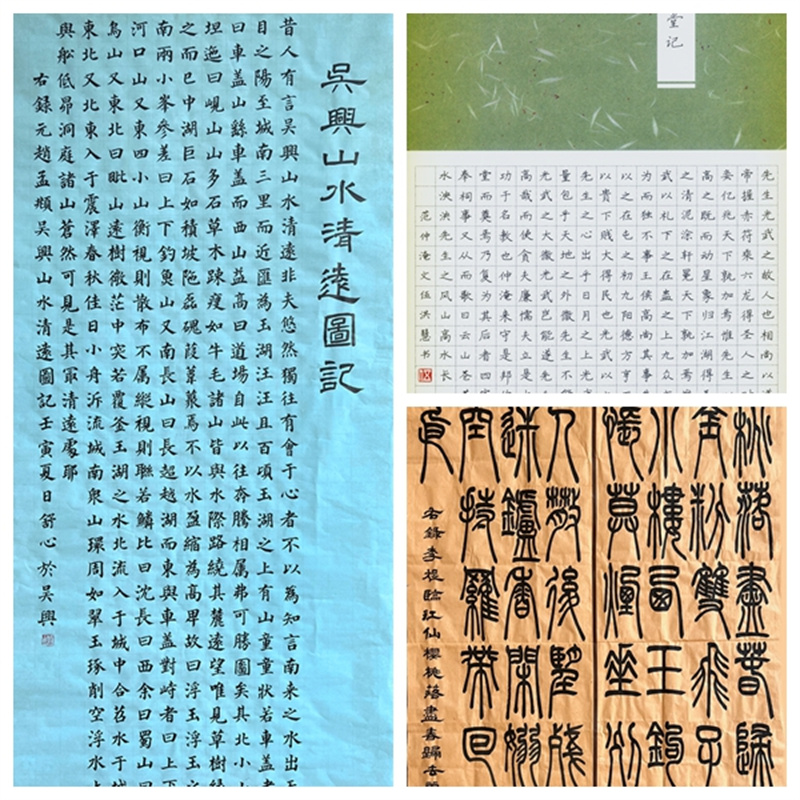 吳興山水清遠圖記
昔人有言吳興山水清遠非夫悠然獨往有會于心者不以爲知言南来之水出天
目之陽至城南三里而近匯為玉湖汪汪且百頃玉湖之上有山童童狀若車蓋者
曰車盖山繇車盖而西山益高曰道場自此以往奔騰相属弗可勝圖矣其北小山
坦迤曰峴山山多石草木踈瘦如牛毛諸山皆與水際路繞其麓遠望唯見草樹緣
之而已中湖巨石如積坡陁磊磈葭葦藂焉不以水盈縮為高卑故曰浮玉浮玉之
南兩小峯參差曰上下釣魚山又南長山曰長超越湖而東與車盖對峙者曰上下
河口山又東四小山衡視則散布不属縱視則聯若鱗比曰沈長曰西余曰蜀山曰
烏山又東北曰毗山遠樹微茫中突若覆釜玉湖之水北流入于城中合苕水于城
東北又北東入于震澤春秋佳日小舟泝流城南衆山環周如翠玉琢削空浮水上
與舩低昂洞庭諸山蒼然可見是其冣清遠處耶
右錄元趙孟頫吳興山水清遠圖記壬寅夏日舒心於吳興
堂记
先生光武之故人也相尚以
帝握赤符乘六龙得圣人之
妾亿兆天下孰加焉惟先生
高之既而动星象归江湖得
之清泥涂轩冕天下孰加焉
武以礼下之在蛊之上九众
为而独不事王侯高尚其事
以之在屯之初九阳德方亨
以贵下贱大得民也光武以
之心出乎日月之上光
量包乎天地之外微先生不
光武之大微光武岂能遂先
高哉而使贪夫廉懦夫立是
功于名教也仲淹来守是邦
堂而奠焉乃复为其后者四
奉祠事又从而歌曰云山苍
水泱泱先生之风山高水长
范仲淹文伍洪慧书
桃落盡春歸
金粉雙飛子
小樓西玉鉤
悵莫煙垂別
人散後望殘
迷鑪香閑嫋
空持羅帶回
右錄李煜臨江仙櫻桃落盡春歸去